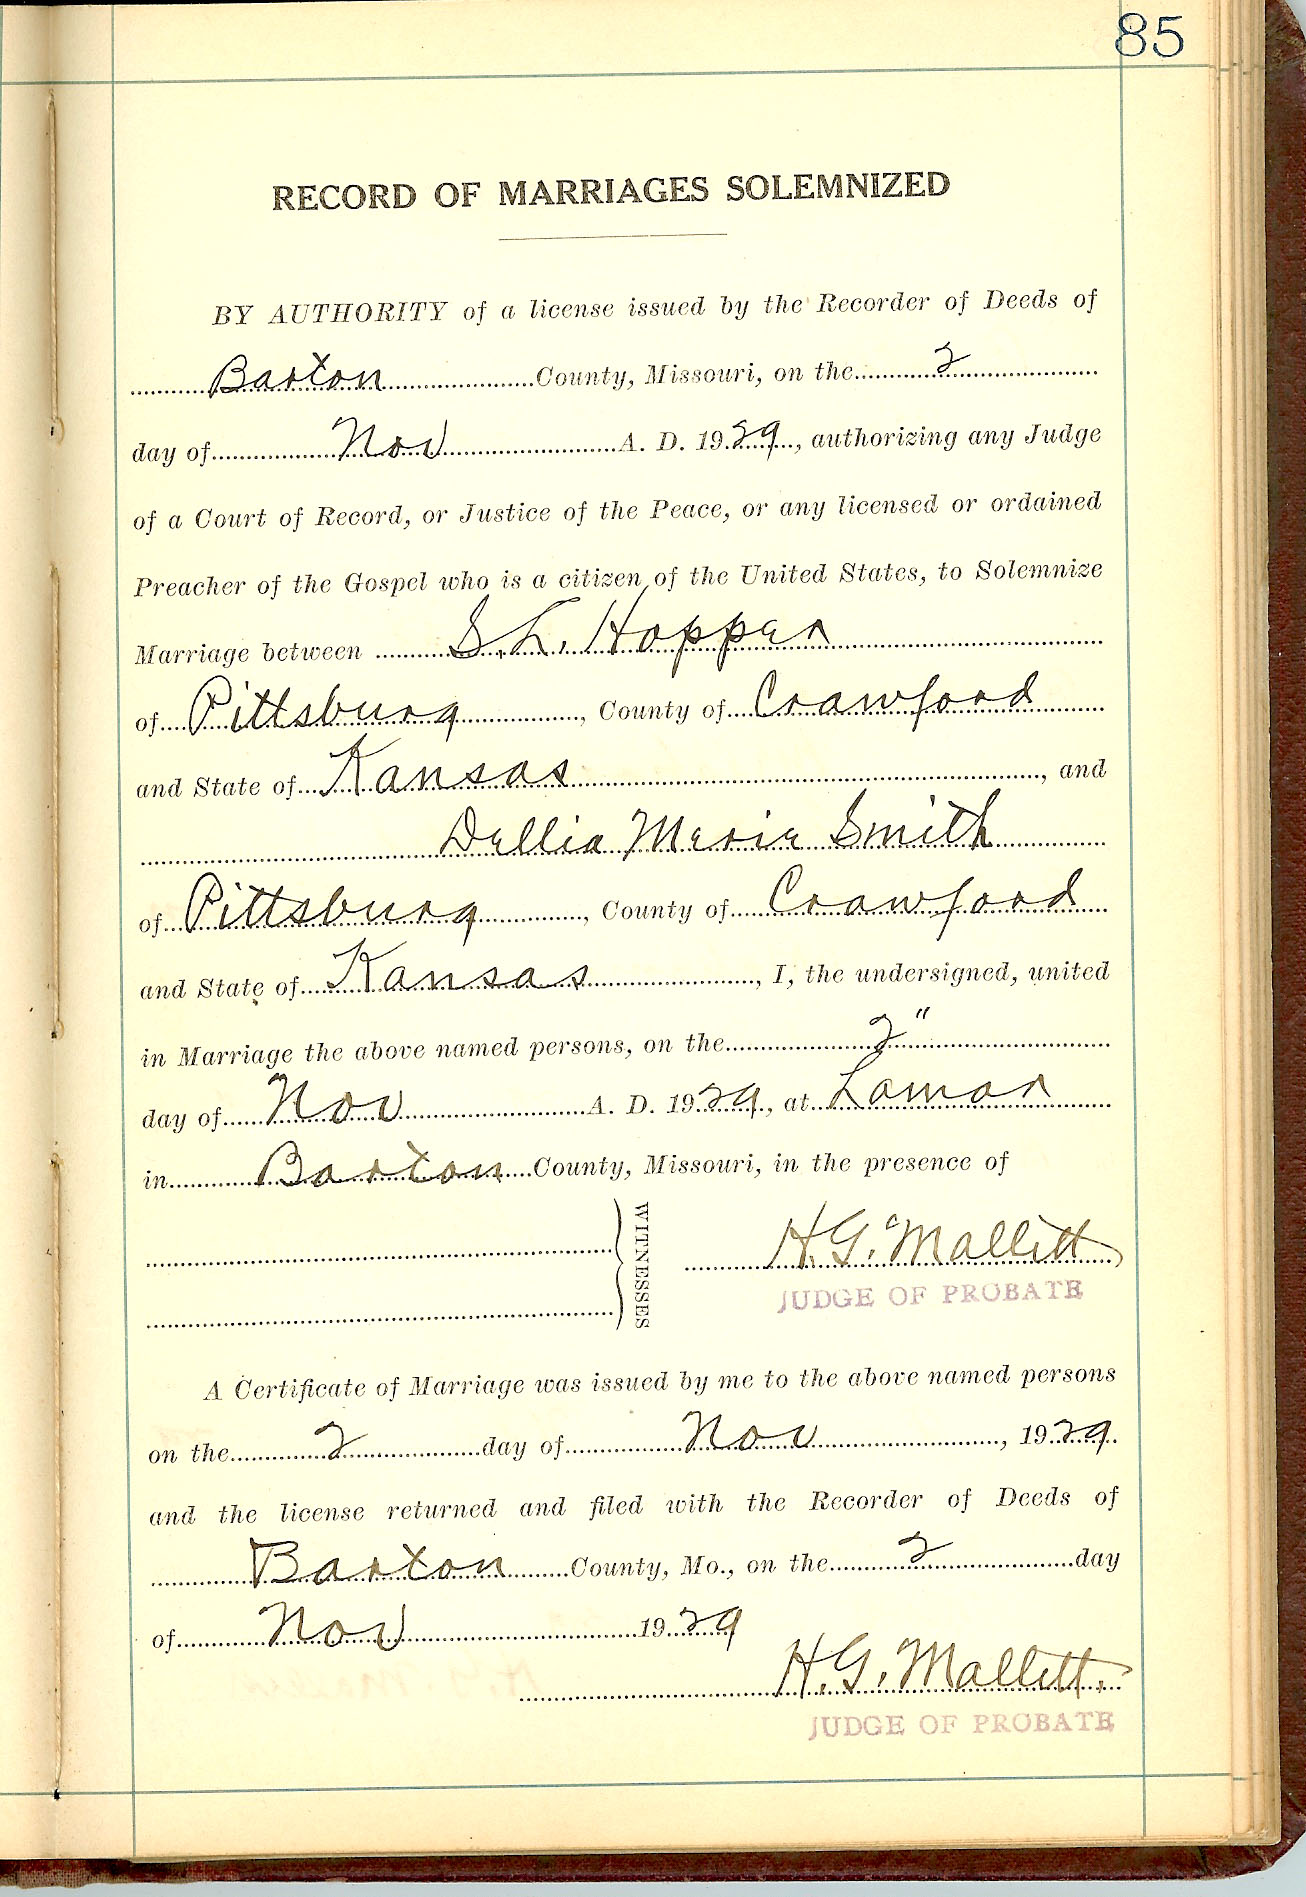 85
RECORD OF MARRIAGES SOLEMNIZED
BY AUTHORITY of a license issued by the Recorder of Deeds of
Barton County, Missouri, on the 2
day of Nov A. D. 1929, authorizing any Judge
of a Court of Record, or Justice of the Peace, or any licensed or ordained
Preacher of the Gospel who is a citizen of the United States, to Solemnize
Marriage between S. L. Hopper
of Pittsburg, County of Crawford
and State of Kansas, and
Dellia Merie Smith
of Pittsburg, County of Crawford
and State of Kansas, I, the undersigned, united
in Marriage the above named persons, on the 2"
day of Nov A. D. 1929, at Lamar
in Barton County, Missouri, in the presence of
WITNESSES
H. G. Mallett
JUDGE OF PROBATE
A Certificate of Marriage was issued by me to the above named persons
on the 2 day of Nov, 1929.
and the license returned and filed with the Recorder of Deeds of
Barton County, Mo., on the 2 day
of Nov 1929
H. G. Mallett.
JUDGE OF PROBATE